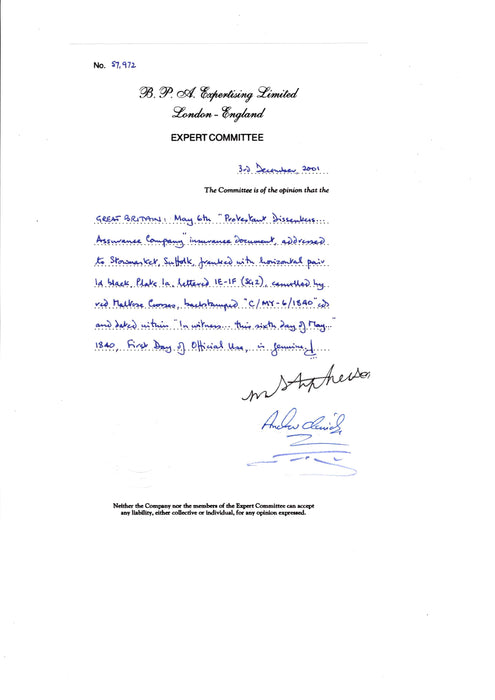 No. 57,972
B. P. A. Expertising Limited
London - England
EXPERT COMMITTEE
3rd December, 2001
The Committee is of the opinion that the
GREAT BRITAIN: May 6th "Protestant Dissenters...
Assurance Company" insurance document, addressed
to Stowmarket, Suffolk, franked with horizontal pair
1d black Plate 1a, lettered IE-IF (SG2), cancelled by
red Maltese Crosses, backstamped "C/MY-6/1840" cds
and dated within "In witness... this sixth day of May..."
1840, First Day of Official Use, is genuine.
Neither the Company nor the members of the Expert Committee can accept
any liability, either collective or individual, for any opinion expressed.